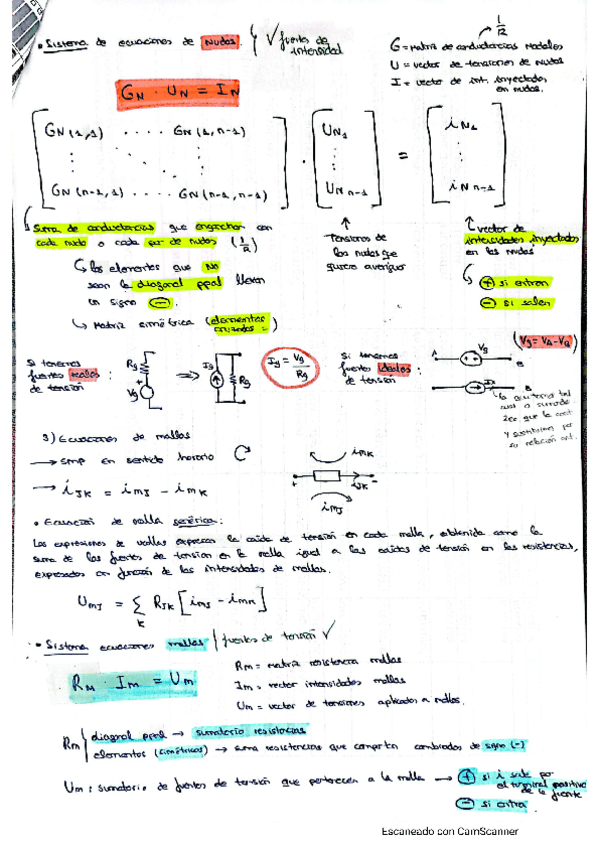 • Sistema de ecuaciones de nudos. √ fuentes de intensidad
G = Matriz de conductancias nodales
1/R
U = vector de tensiones de nudos
I = vector de int. inyectadas en nudos.
GN · UN = IN
GN(1,1) .... GN(1,n-1)
GN(n-1,1) .... GN(n-1,n-1)
·
UN1
UN n-1
=
iN1
iN n-1
Suma de conductancias que enganchan con
cada nudo o cada par de nudos (1/R)
↳ los elementos que no
sean la diagonal ppal llevan
un signo (-).
↳ Matriz simétrica (elementos
cruzados =)
↑
Tensiones de
los nudos que
quiero averiguar
↳ vector de
intensidades inyectadas
en los nudos
(+) si entran
(-) si salen
Si tenemos
fuentes reales :
de tensión
Rg
+
Vg
⇒
Ig
Rg
Ig = Vg/Rg
Si tenemos
fuentes ideales :
de tensión
(Vg = VA - VB)
A Vg B
B
y sustituimos por
su relación
3) Ecuaciones de mallas
→ smp en sentido horario
→ iJK = imJ - imK
imK
+ -
iJK
imJ
• Ecuación de malla genérica:
Las expresiones de mallas expresan la caida de tensión en cada malla, obtenida como la
suma de las fuentes de tension en la malla igual a las caidas de tensión en las resistencias,
expresados en función de las intensidades de mallas.
UmJ = Σ RJK [imJ - imK]
K
• Sistema ecuaciones mallas / fuentes de tensión √
RM · IM = Um
Rm = matriz resistencia mallas
Im = vector intensidades mallas
Um = vector de tensiones aplicadas a mallas.
Rm { diagonal ppal → sumatorio resistencias
elementos (simétricos) → suma resistencias que comparten cambiados de signo (-)
Um : sumatorio de fuentes de tensión que pertenecen a la malla → (+) si i sale por
el terminal positivo
de la fuente
(-) si entra.
Escaneado con CamScanner